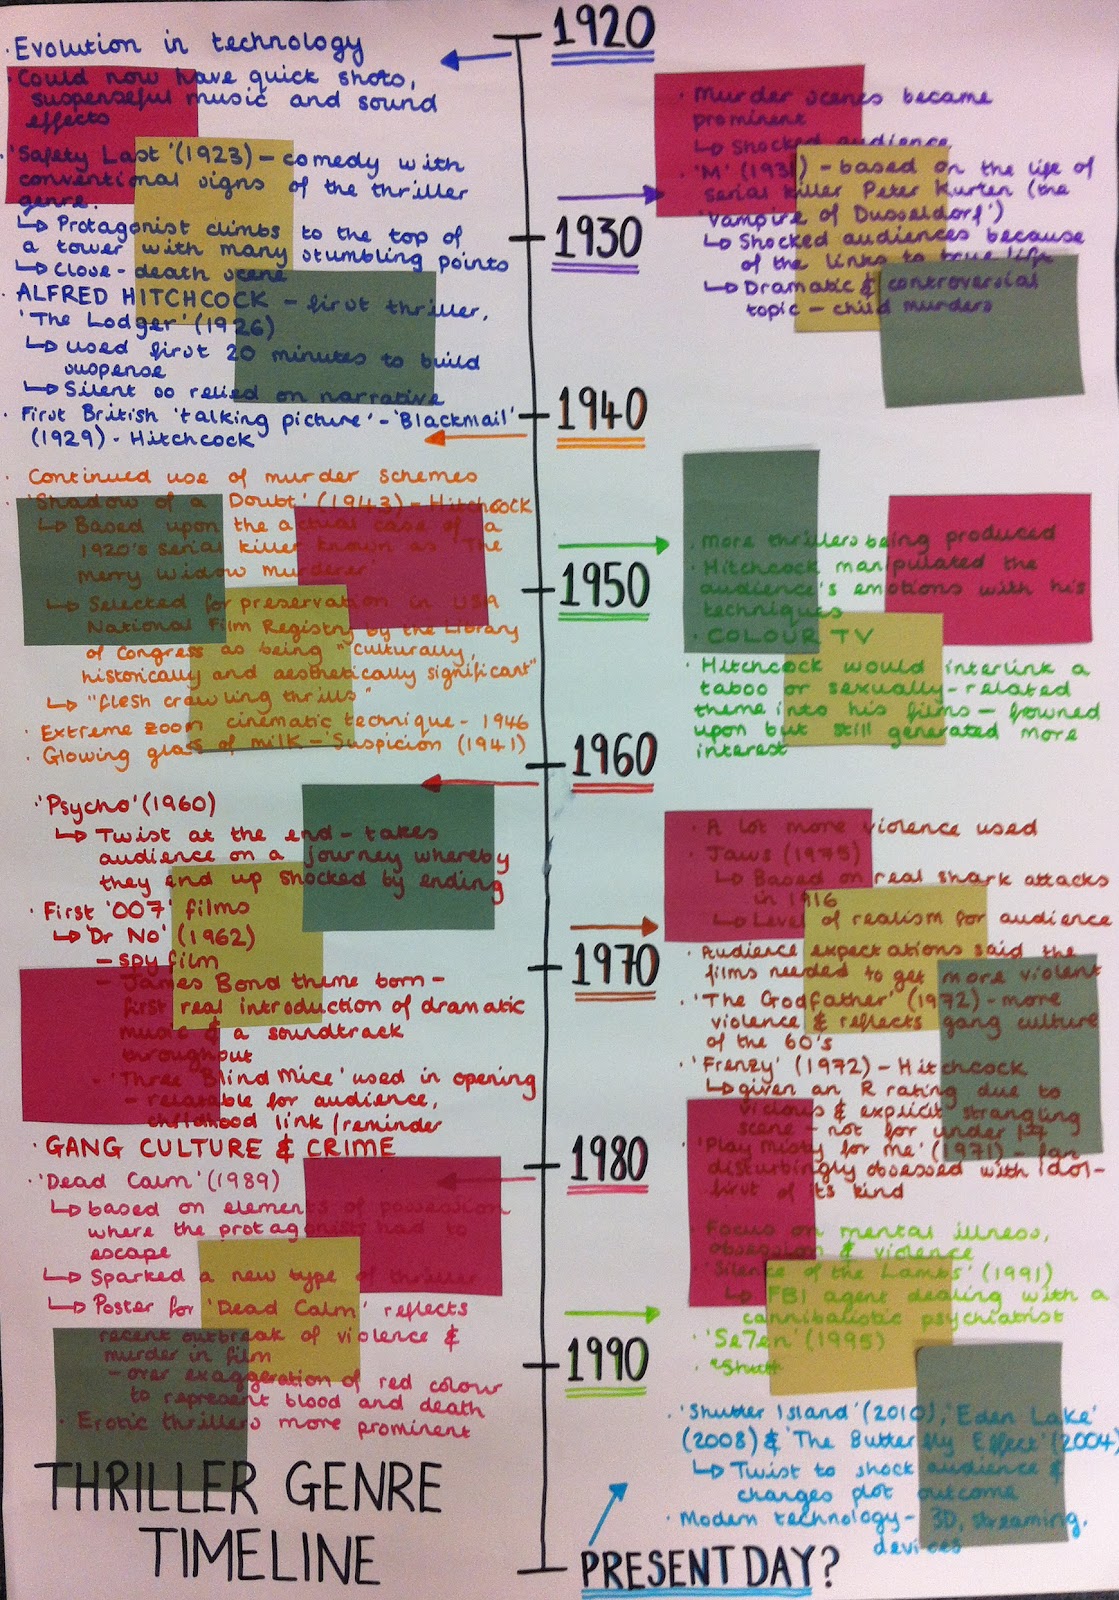 1920
· Evolution in technology
· Could now have quick shots,
suspenseful music and sound
effects
· 'Safety Last' (1923) - comedy with
conventional signs of the thriller
genre.
↳ Protagonist climbs to the top of
a tower with many stumbling points
↳ Close-death scene
· ALFRED HITCHCOCK - first thriller,
'The Lodger' (1926)
↳ used first 20 minutes to build
suspense
↳ Silent so relied on narrative
· First British 'talking picture' - 'Blackmail'
(1929) - Hitchcock
1930
· Murder scenes became
prominent
↳ Shocked audience
· 'M' (1931) - based on the life of
serial killer Peter Kurten (the
'Vampire of Dusseldorf')
↳ Shocked audiences because
of the links to true life
↳ Dramatic & controversial
topic - child murders
1940
· Continued use of murder schemes
· 'Shadow of a Doubt' (1943) - Hitchcock
↳ Based upon the actual case of a
1920's serial killer known as 'The
merry widow murderer'
↳ Selected for preservation in USA
National Film Registry by the Library
of Congress as being "culturally,
historically and aesthetically significant"
↳ "flesh crawling thrills"
· Extreme zoom cinematic technique - 1946
· Glowing glass of milk - 'Suspicion' (1941)
1950
· More thrillers being produced
· Hitchcock manipulated the
audience's emotions with his
techniques
· COLOUR TV
· Hitchcock would interlink a
taboo or sexually-related
theme into his films - frowned
upon but still generated more
interest
1960
· 'Psycho' (1960)
↳ Twist at the end - takes
audience on a journey whereby
they end up shocked by ending
· First '007' films
↳ 'Dr No' (1962)
- spy film
- James Bond theme born -
first real introduction of dramatic
music & a soundtrack
throughout
- 'Three Blind Mice' used in opening
- relatable for audience,
childhood link/reminder
· GANG CULTURE & CRIME
1970
· A lot more violence used
· Jaws (1975)
↳ Based on real shark attacks
in 1916
↳ Level of realism for audience
· Audience expectations said the
films needed to get more violent
· 'The Godfather' (1972) - more
violence & reflects gang culture
of the 60's
· 'Frenzy' (1972) - Hitchcock
↳ given an R rating due to
vicious & explicit strangling
scene - not for under 17
· 'Play Misty for me' (1971) - fan
disturbingly obsessed with idol -
first of its kind
1980
· 'Dead Calm' (1989)
↳ based on elements of possession
where the protagonists had to
escape
↳ Sparked a new type of thriller
↳ Poster for 'Dead Calm' reflects
recent outbreak of violence &
murder in film
- over exaggeration of red colour
to represent blood and death
· Erotic thrillers more prominent
1990
· Focus on mental illness,
obsession & violence
· 'Silence of the Lambs' (1991)
↳ FBI agent dealing with a
cannibalistic psychiatrist
· 'Se7en' (1995)
PRESENT DAY?
· 'Shutter Island' (2010), 'Eden Lake'
(2008) & 'The Butterfly Effect' (2004)
↳ Twist to shock audience &
changes plot outcome
· Modern technology - 3D, streaming,
devices
THRILLER GENRE
TIMELINE